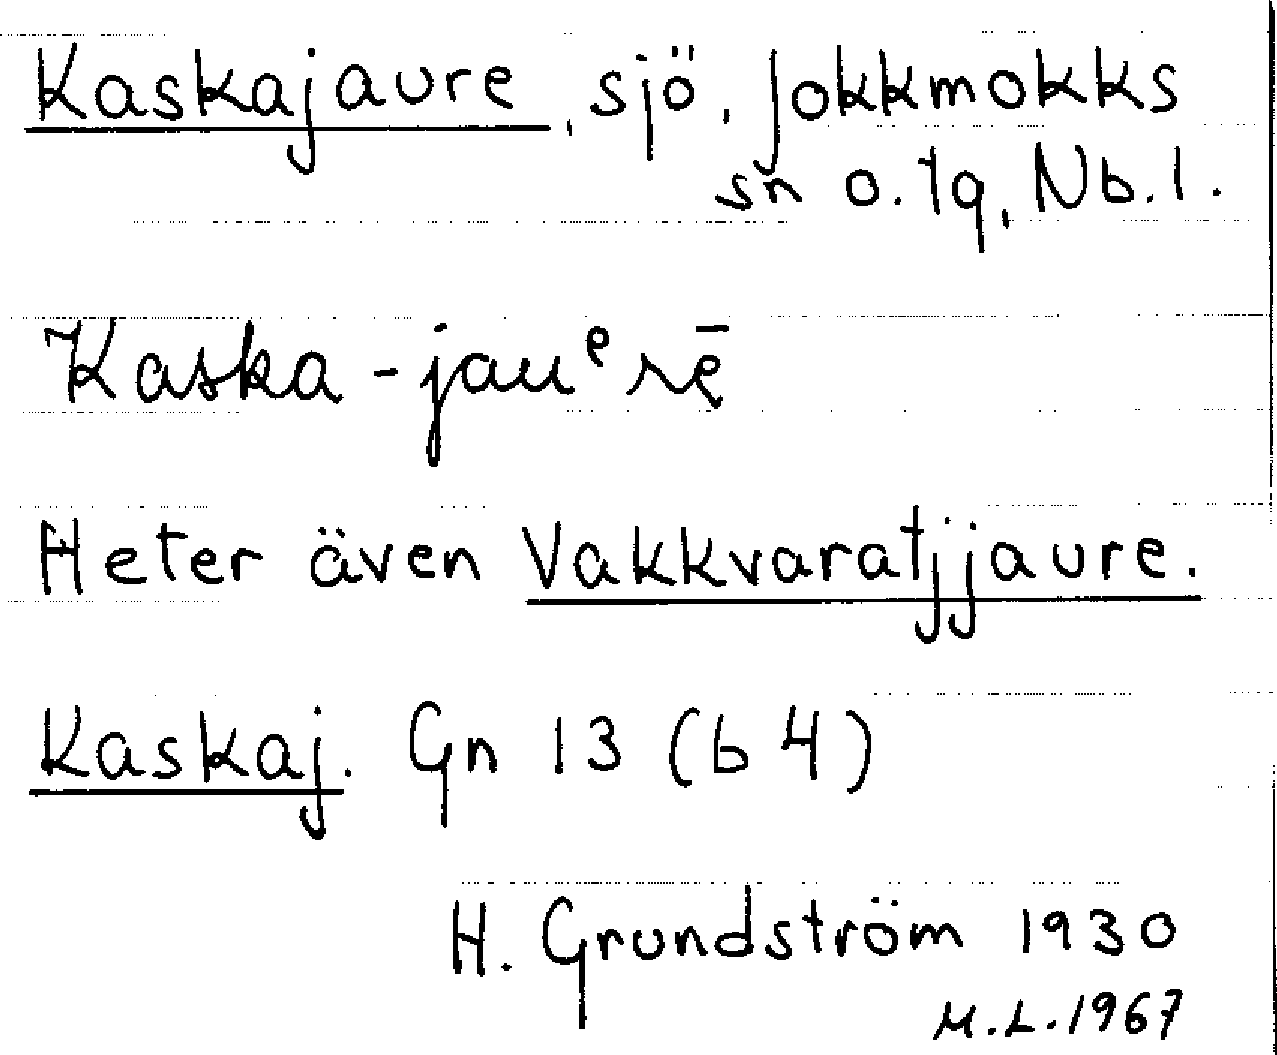 Kaskajaure, sjö, Jokkmokks
sn o. tg, Nb. l.
Kaska-jauᵉrę̄
Heter även Vakkvaratjjaure.
Kaskaj. Gn 13 (b 4)
H. Grundström 1930
M.L. 1967